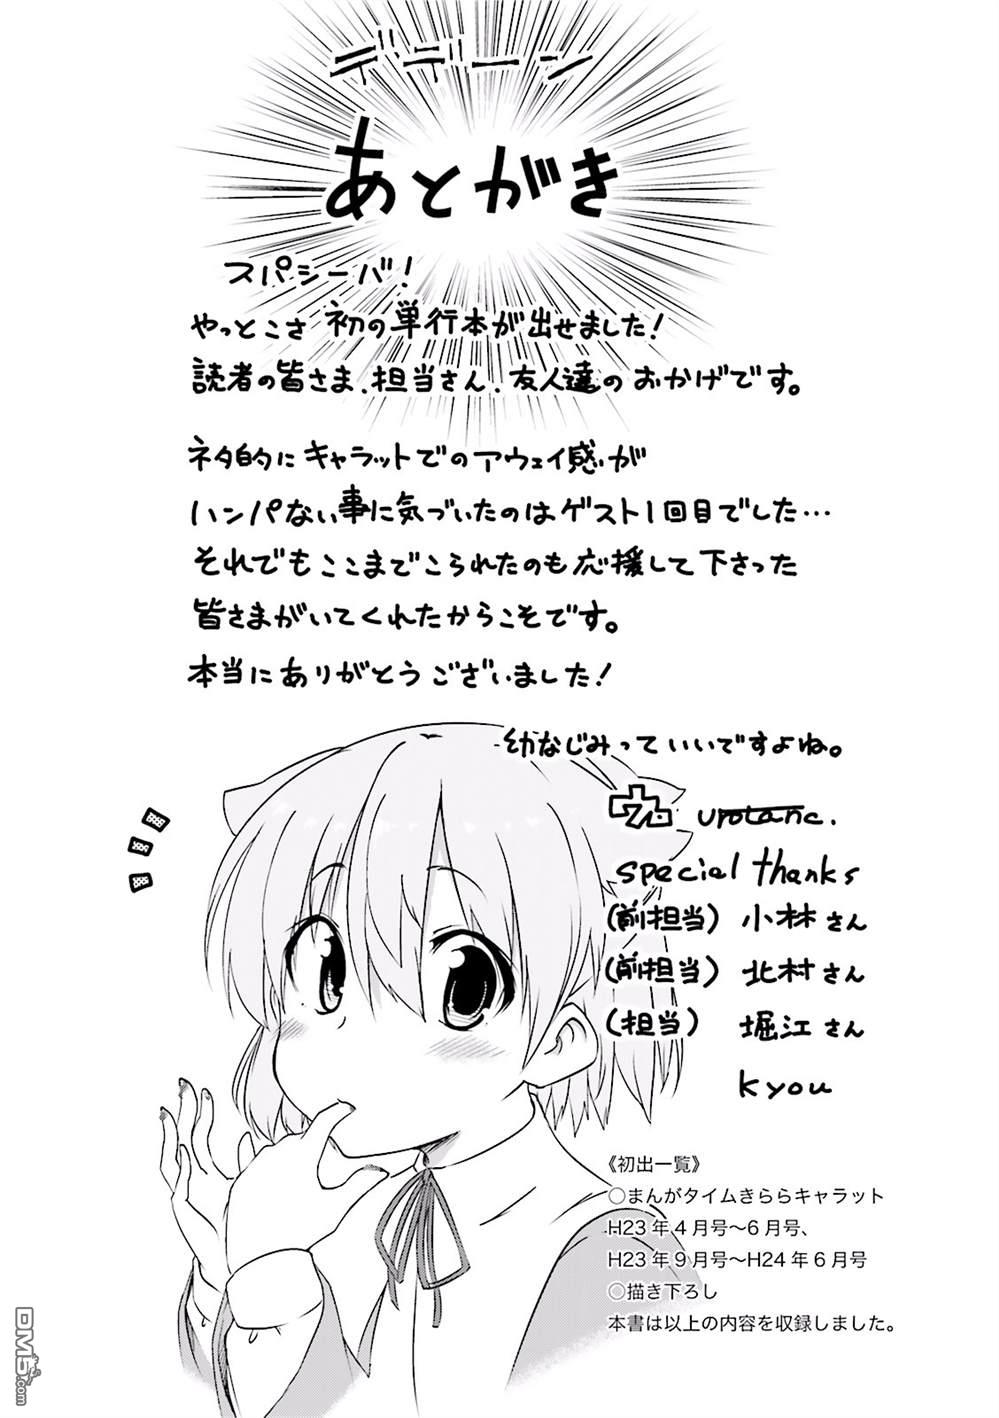 デデーン
あとがき
スパシーバ！
やっとこさ 初の単行本が出せました！
読者の皆さま、担当さん、友人達のおかげです。
ネタ的にキャラットでのアウェイ感が
ハンパない事に気づいたのはゲスト1回目でした…
それでもここまでこられたのも応援して下さった
皆さまがいてくれたからこそです。
本当にありがとうございました！
幼なじみっていいですよね。
ウロ urotanc.
special thanks
(前担当) 小林さん
(前担当) 北村さん
(担当) 堀江さん
kyou
《初出一覧》
○まんがタイムきららキャラット
H23年4月号〜6月号、
H23年9月号〜H24年6月号
○描き下ろし
本書は以上の内容を収録しました。
DM5.com